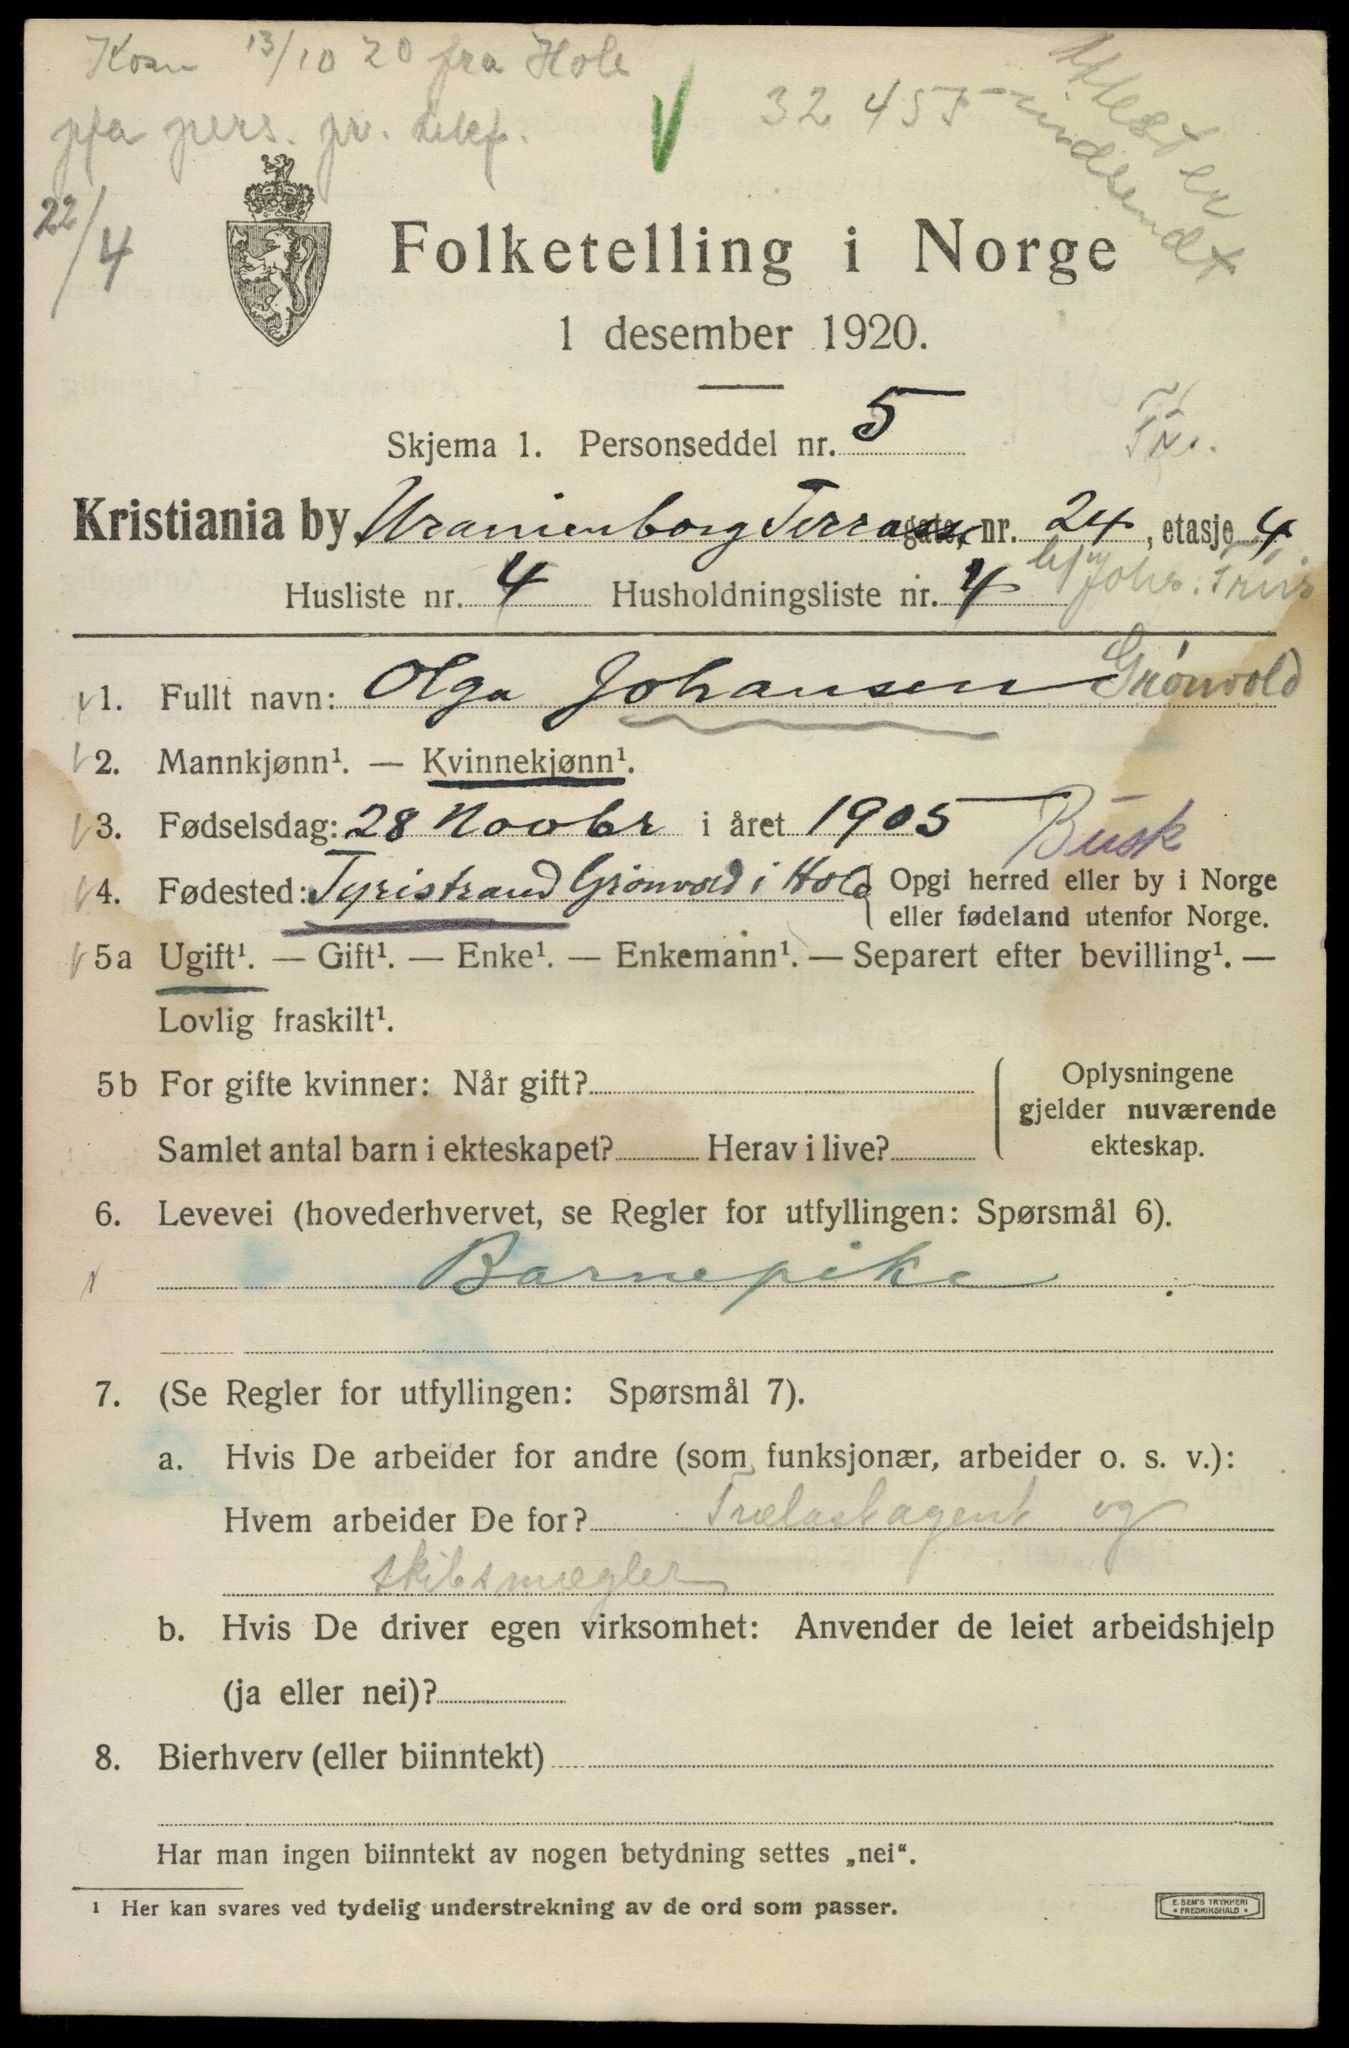 Kom 13/10 20 fra Hole
pers. pr.
32 455
Attest er
indsendt
22/4
Folketelling i Norge
1 desember 1920.
Skjema 1. Personseddel nr. 5
Kristiania by Uranienborg Terrasse gate, nr. 24, etasje 4
Husliste nr. 4 Husholdningsliste nr. 4
1. Fullt navn: Olga Johansen Grønvold
2. Mannkjønn¹. — Kvinnekjønn¹.
3. Fødselsdag: 28 Novbr i året 1905 Busk
4. Fødested: Tyristrand Grönvold i Hole Opgi herred eller by i Norge
eller fødeland utenfor Norge.
5a Ugift¹. — Gift¹. — Enke¹. — Enkemann¹. — Separert efter bevilling¹. —
Lovlig fraskilt¹.
5b For gifte kvinner: Når gift?
Samlet antal barn i ekteskapet? Herav i live?
Oplysningene
gjelder nuværende
ekteskap.
6. Levevei (hovederhvervet, se Regler for utfyllingen: Spørsmål 6).
Barnepike
7. (Se Regler for utfyllingen: Spørsmål 7).
a. Hvis De arbeider for andre (som funksjonær, arbeider o. s. v.):
Hvem arbeider De for? Trælastagent og
skibsmægler
b. Hvis De driver egen virksomhet: Anvender de leiet arbeidshjelp
(ja eller nei)?
8. Bierhverv (eller biinntekt)
Har man ingen biinntekt av nogen betydning settes „nei“.
1 Her kan svares ved tydelig understrekning av de ord som passer.
E. SEM'S TRYKKERI
FREDRIKSHALD